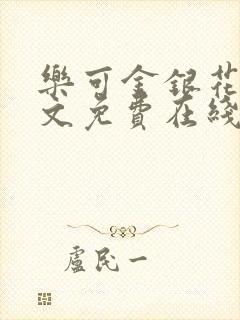 樂可金銀花
文免費在綫
盧民一